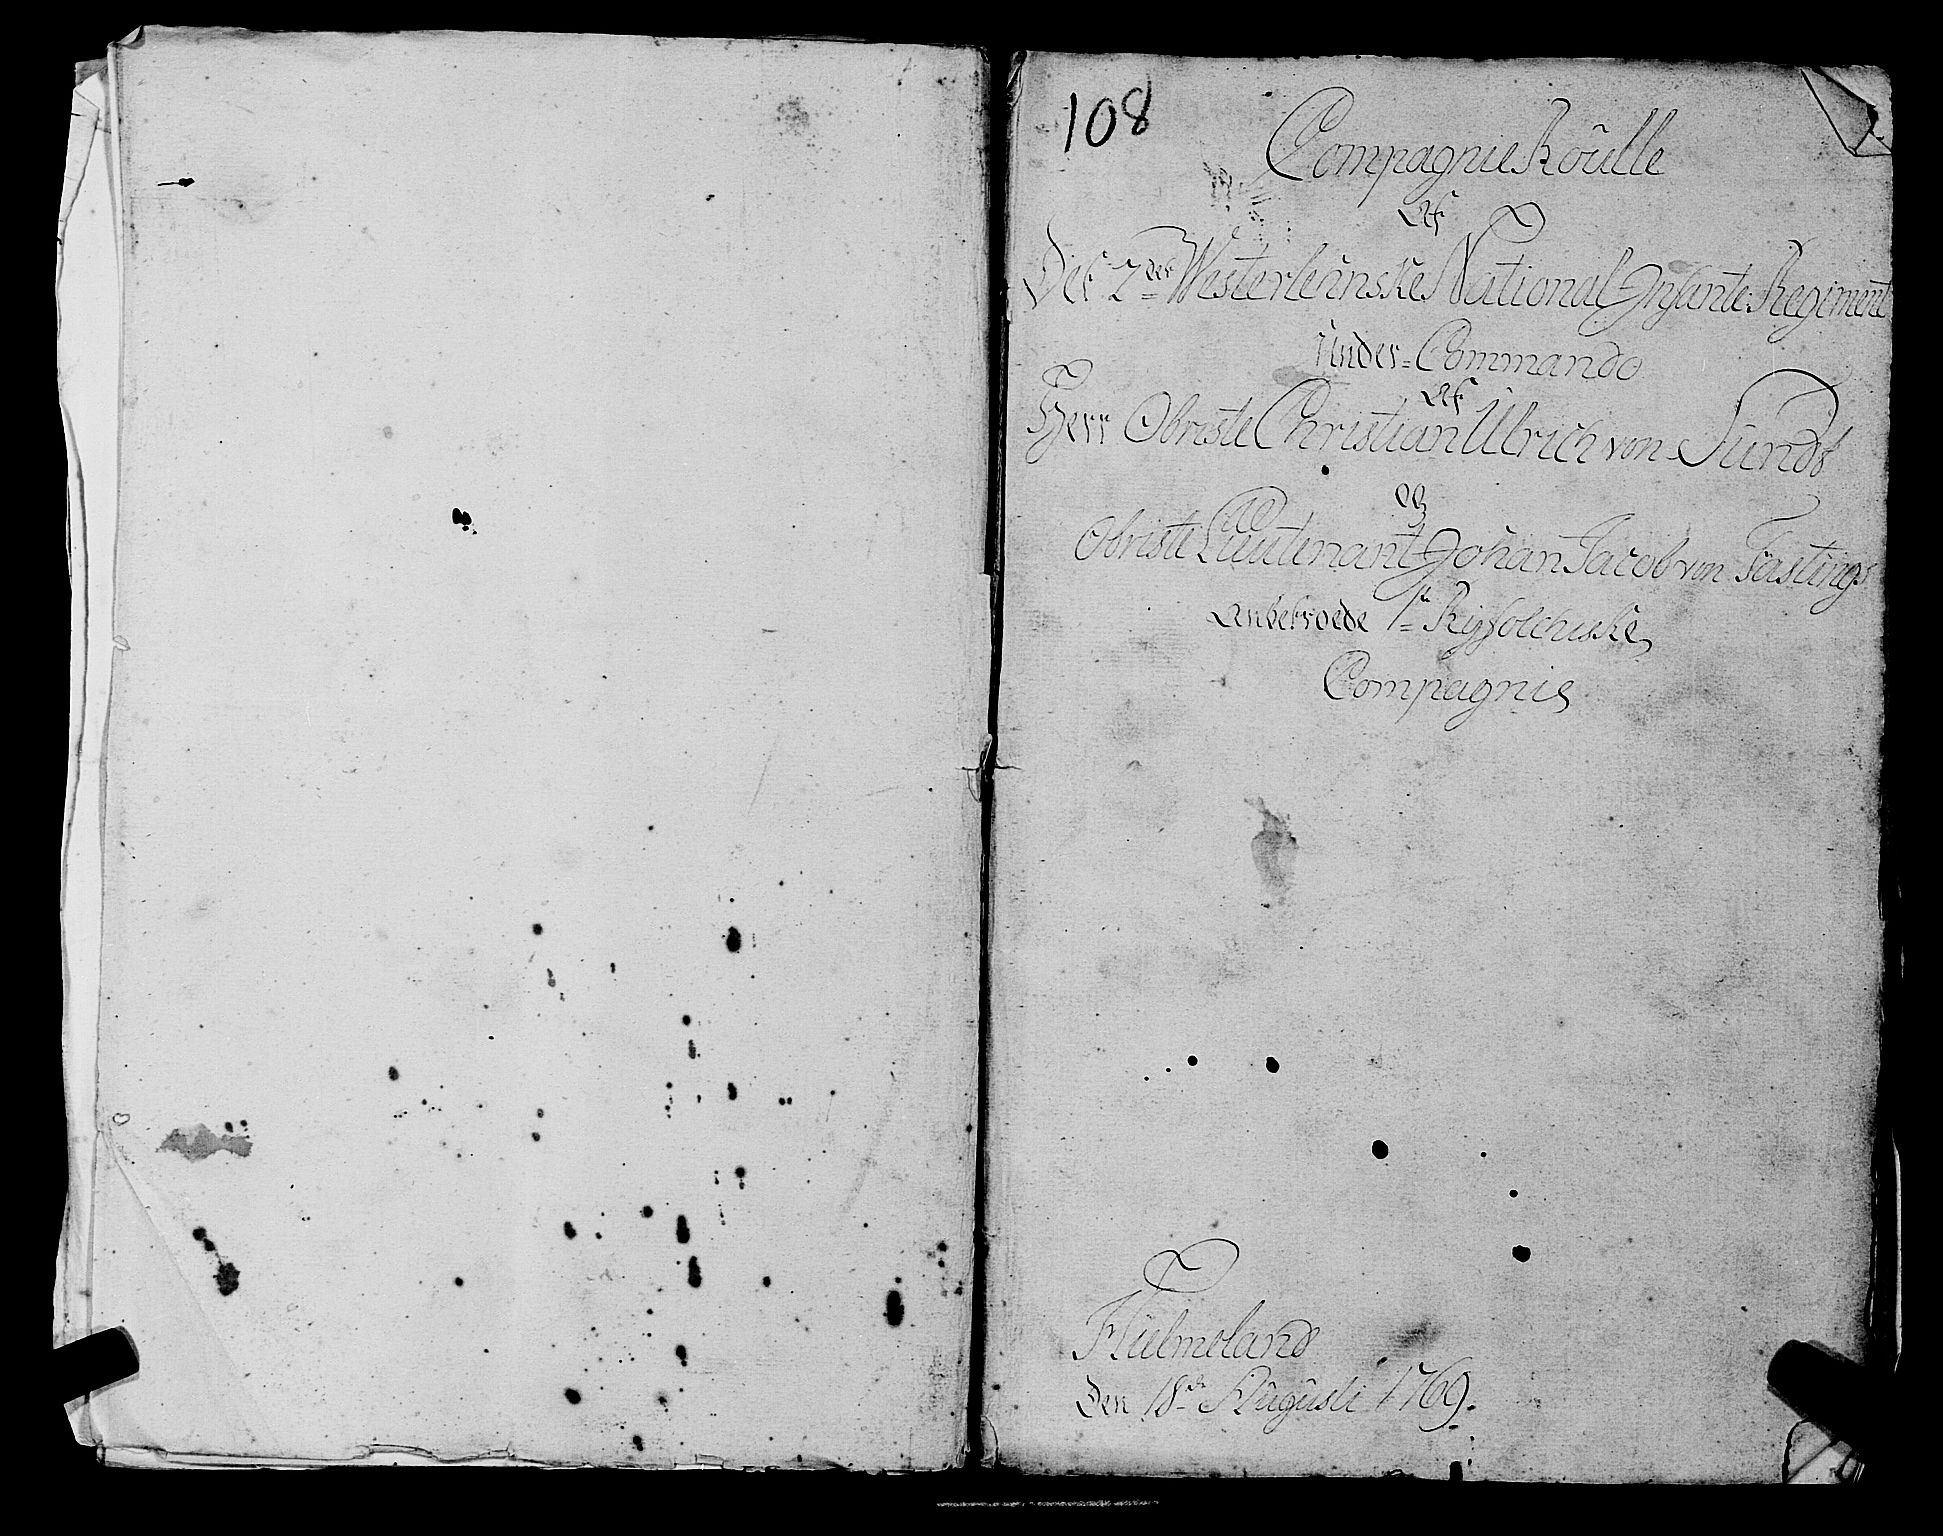 108
Compagnie Roulle
Af
Det 2det Westerlenske National Infante: Regiment
Under= Commando
Af
Herr Obriste Christian Ulrich von Sundt
og
Obriste Lieutenant Johan Jacob von Fastings
Anbetroede 1te Ryfolchiske
Compagnie
Hielmeland
Den 18de Augusti 1769.